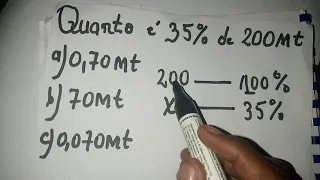 Quanto é 35% de 200Mt
a) 0,70Mt
b) 70Mt
c) 0,070Mt
200 — 100%
X — 35%